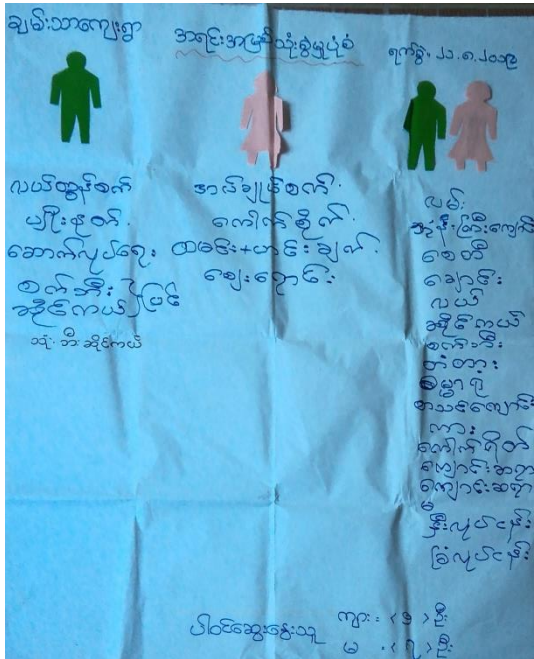 ချမ်းသာကျေးရွာ
အရင်းအမြစ်သုံးစွဲမှုပုံစံ
ရက်စွဲ၊ ၂၁.၈.၂၀၁၉
လယ်ထွန်စက်
မျိုးနုတ်
ဆောက်လုပ်ရေး
စက်ဘီး
ဆိုင်ကယ် ပြင်
သုံးဘီးဆိုင်ကယ်
အပ်ချုပ်စက်
ကောက်စိုက်
ထမင်း+ဟင်းချက်
ဈေးရောင်း
လမ်း
ဘုန်းကြီးကျောင်း
စေတီ
ချောင်း
လယ်
ဆိုင်ကယ်
စက်ဘီး
တံတား
ဓမ္မာရုံ
စာသင်ကျောင်း
ကား
ကောက်ရိတ်
ကျောင်းဆရာ
ကျောင်းဆရာ
မ
နှီးလုပ်ငန်း
ခြံလုပ်ငန်း
ပါဝင်ဆွေးနွေးသူ
ကျား - <၁> ဦး
မ - <၇> ဦး